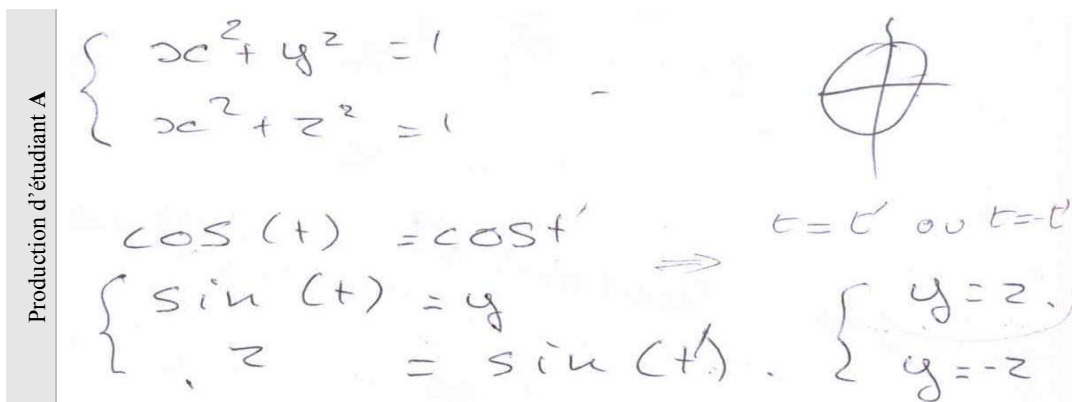 Production d'étudiant A
x² + y² = 1
x² + z² = 1
cos (t) = cos t' ⇒ t = t' ou t = -t'
sin (t) = y
z = sin (t').
y = z.
y = -z